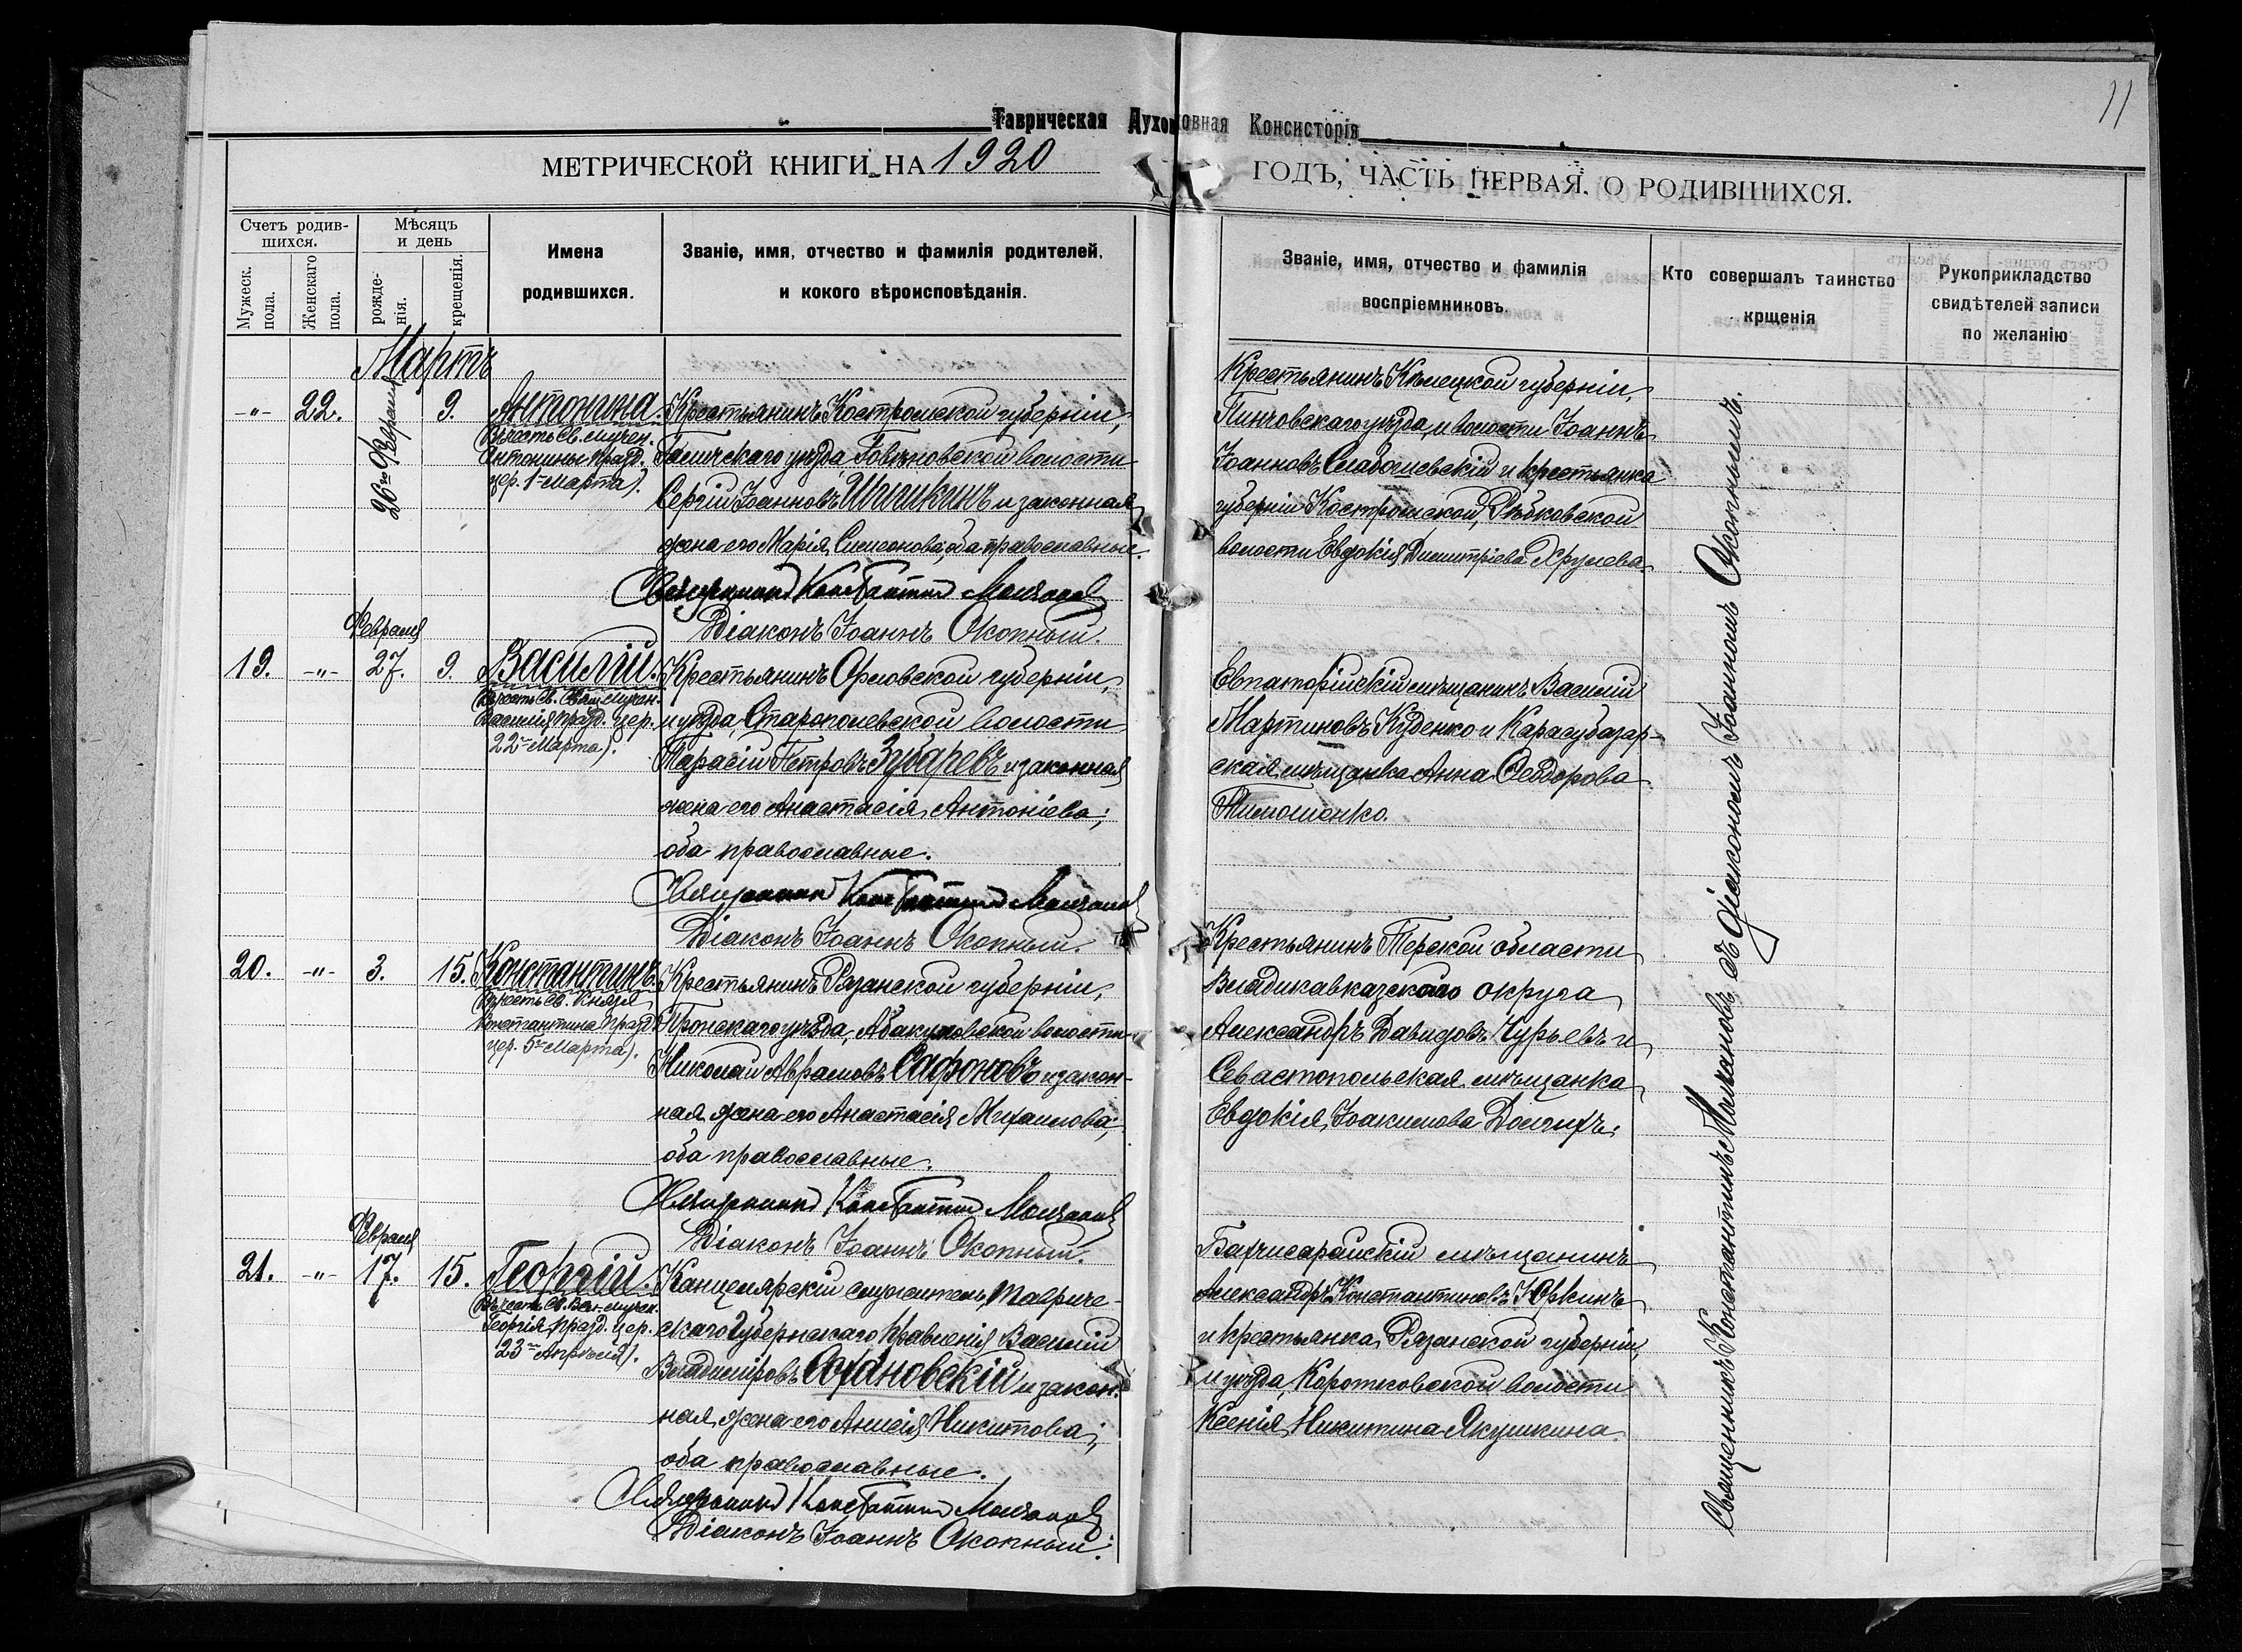 11
Таврическая Духовная Консисторія
МЕТРИЧЕСКОЙ КНИГИ НА 1920
ГОДЪ, ЧАСТЬ ПЕРВАЯ. О РОДИВШИХСЯ.
Счетъ родив-
шихся.
Мужеск.
пола.
Женскаго
пола.
Мѣсяцъ
и день
рожде-
нія.
крещенія.
Имена
родившихся.
Званіе, имя, отчество и фамилія родителей,
и кокого вѣроисповѣданія.
Званіе, имя, отчество и фамилія
воспріемниковъ.
Кто совершалъ таинство
крщенія
Рукоприкладство
свидѣтелей записи
по желанію
Мартъ
-"- 22. 26го Февраля 9. Антонина.
(Въ честь Св. мучен.
Антонины празд.
цер. 1го Марта).
Крестьянинъ Костромской губерніи,
Галичскаго уѣзда Говѣновской волости
Сергій Іоанновъ Шишкинъ и законная
жена его Марія Симеонова, оба православные.
Священникъ Константинъ Молчановъ
Діаконъ Іоаннъ Окопный.
Крестьянинъ Кѣлецкой губерніи,
Пинчовскаго уѣзда, и волости Іоаннъ
Іоанновъ и крестьянка
губерніи Костромской,
волости Евдокія Димитріева Хрулева.
Февраля
19. -"- 27. 9. Василій.
(Въ честь Св. Свящ. Мучен.
Василія празд. цер.
22го Марта).
Крестьянинъ Орловской губерніи,
и уѣзда, Старопольевской волости
Тарасій Петровъ Зубаревъ и законная
жена его Анастасія Антоніева,
оба православные.
Священникъ Константинъ Молчановъ
Діаконъ Іоаннъ Окопный.
Евпаторійскій мѣщанинъ Василій
Мартиновъ Куденко и Карасубазар-
ская мѣщанка Анна Ѳеодорова
Тимошенко.
20. -"- 3. 15. Константинъ.
(Въ честь Св. Князя
Константина празд.
цер. 5го Марта).
Крестьянинъ Рязанской губерніи,
Пронскаго уѣзда, Абакумовской волости
Николай Аврамовъ Сафоновъ и закон-
ная жена его Анастасія Михаилова,
оба православные.
Священникъ Константинъ Молчановъ
Діаконъ Іоаннъ Окопный.
Крестьянинъ Терской области
Владикавказскаго округа
Александръ Давидовъ Чурьевъ и
Севастопольская мѣщанка
Евдокія Іоакимова Долгихъ.
Февраля
21. -"- 17. 15. Георгій.
(Въ честь Св. Вел.-мучен.
Георгія празд. цер.
23го Апрѣля).
Канцелярскій служитель, Тавриче-
скаго Губернскаго Правленія Василій
Владиміровъ и закон-
ная жена его Анисія Никитова,
оба православные.
Священникъ Константинъ Молчановъ
Діаконъ Іоаннъ Окопный.
Бахчисарайскій мѣщанинъ
Александръ Константиновъ Юркинъ
и крестьянка Рязанской губерніи,
и уѣзда, Коротковской волости
Ксенія Никитина Якушкина.
Священникъ Константинъ Молчановъ съ діакономъ Іоанномъ Окопнымъ.